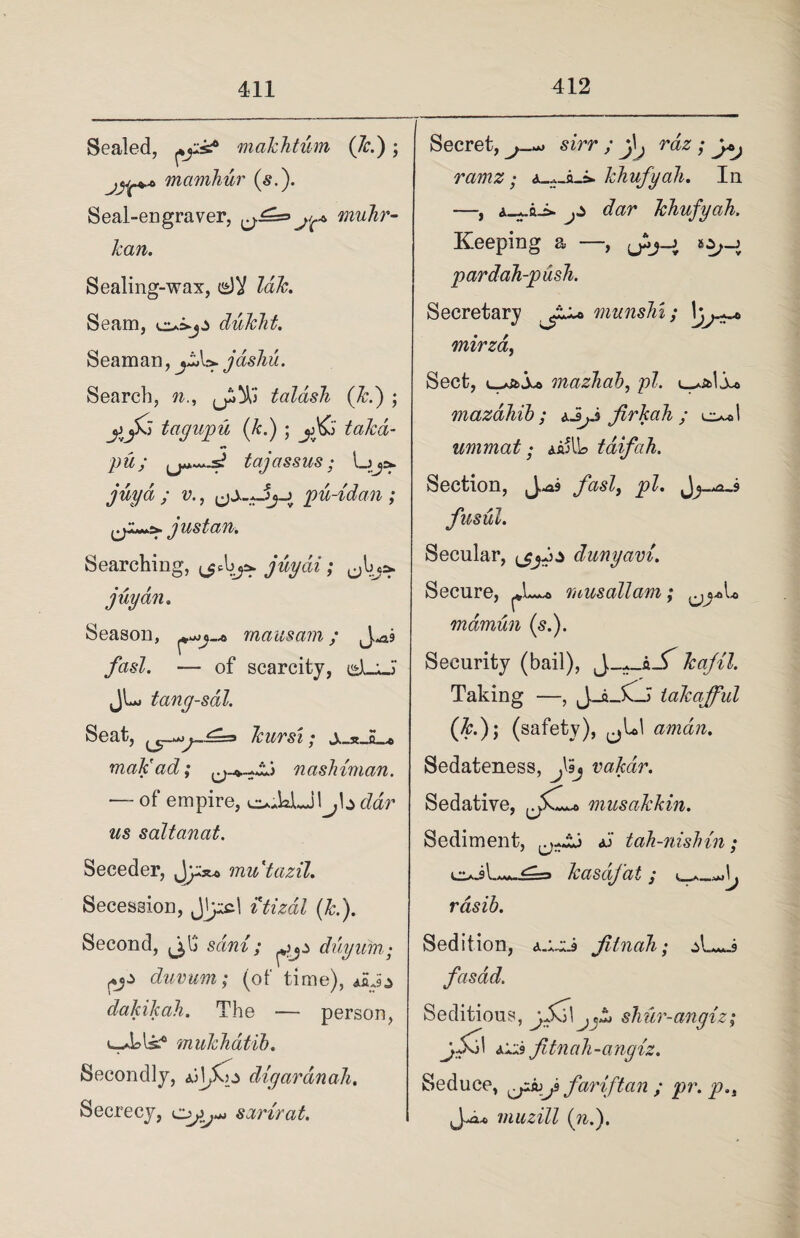 411
412
Sealed, مختوم makhtúm (k.) ;
ممهور mamhúr (s.).
Seal-engraver, مهرکن muhr-
kan.
Sealing-wax, لاك lák.
Seam, دوخت dúkht.
Seaman, جاشو jáshú.
Search, n., تلاش talásh (k.) ;
تگوپو tagupú (k.) ; تکاپو taká-
pú ; تجسس tajassus ; جویا
júyá ; v., پوئیدن pú-idan ;
جستن justan.
Searching, جویائ júyái ; جویان
júyán.
Season, موسم mausam ; فصل
fasl. — of scarcity, تنگ
سال tang-sál.
Seat, کرسی kursí ; مقعد
mak'ad ; نشیمن nashíman.
— of empire, دار السلطنت dár
us saltanat.
Seceder, معتزل mu'tazil.
Secession, اعتزال i'tizál (k.).
Second, ثانی sání ; دویم dúyum ;
دوم duvum ; (of time), دقیقه
dakíkah. The — person,
مخاطب mukhátib.
Secondly, دیگرانه dígaránah.
Secrecy, سریرت sarírat.
Secret, سر sirr ; راز ráz ; رمز
ramz ; خفیه khufyah. In
—, در خفیه dar khufyah.
Keeping a —, پرده پوش
pardah-púsh.
Secretary منشی munshí ; میرزا
mirzá,
Sect, مذهب mazhab, pl. مذاهب
mazáhib ; فرقه firkah ; امت
ummat ; طائفه táifah.
Section, فصل fasl, pl. فصول
fusúl.
Secular, دنیوی dunyaví.
Secure, مسلم musallam ; مامون
mámún (s.).
Security (bail), کفیل kafíl.
Taking —, تکفل takafful
(k.); (safety), امان amán.
Sedateness, وقار vakár.
Sedative, مسکن musakkin.
Sediment, ته نشین tah-nishín ;
کثافت kasáfat ; راسب
rásib.
Sedition, فتنه fitnah ; فساد
fasád.
Seditious, شور انگیز shúr-angíz ;
فتنه انگیز fitnah-angíz.
Seduce, فریفتن faríftan ; pr. p.,
مضل muzill (n.).